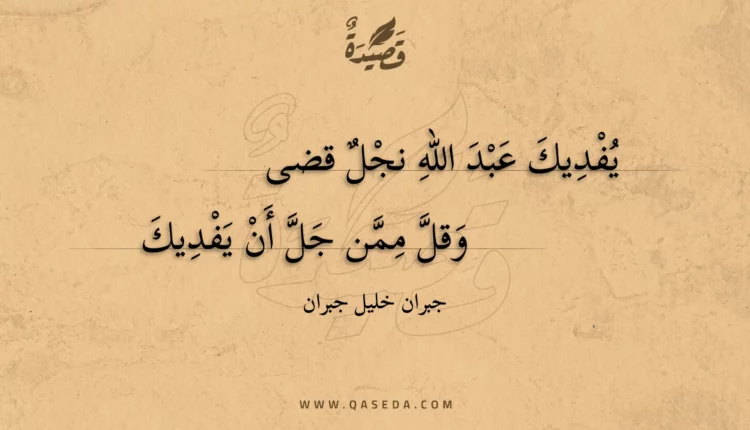 قَصِيْدَةٌ
يُفْدِيكَ عَبْدَ اللهِ نجْلٌ قضى
وَقلَّ مِمَّن جَلَّ أَنْ يَفْدِيكَ
جبران خليل جبران
WWW.QASEDA.COM